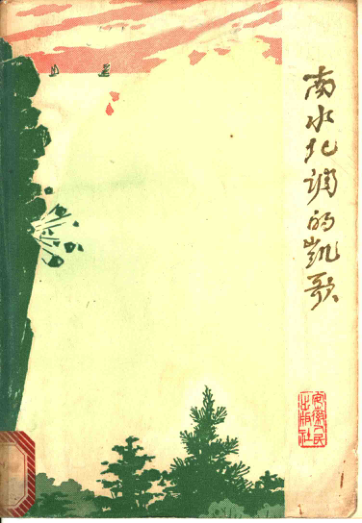 南水北调的凯歌
安徽人民
出版社